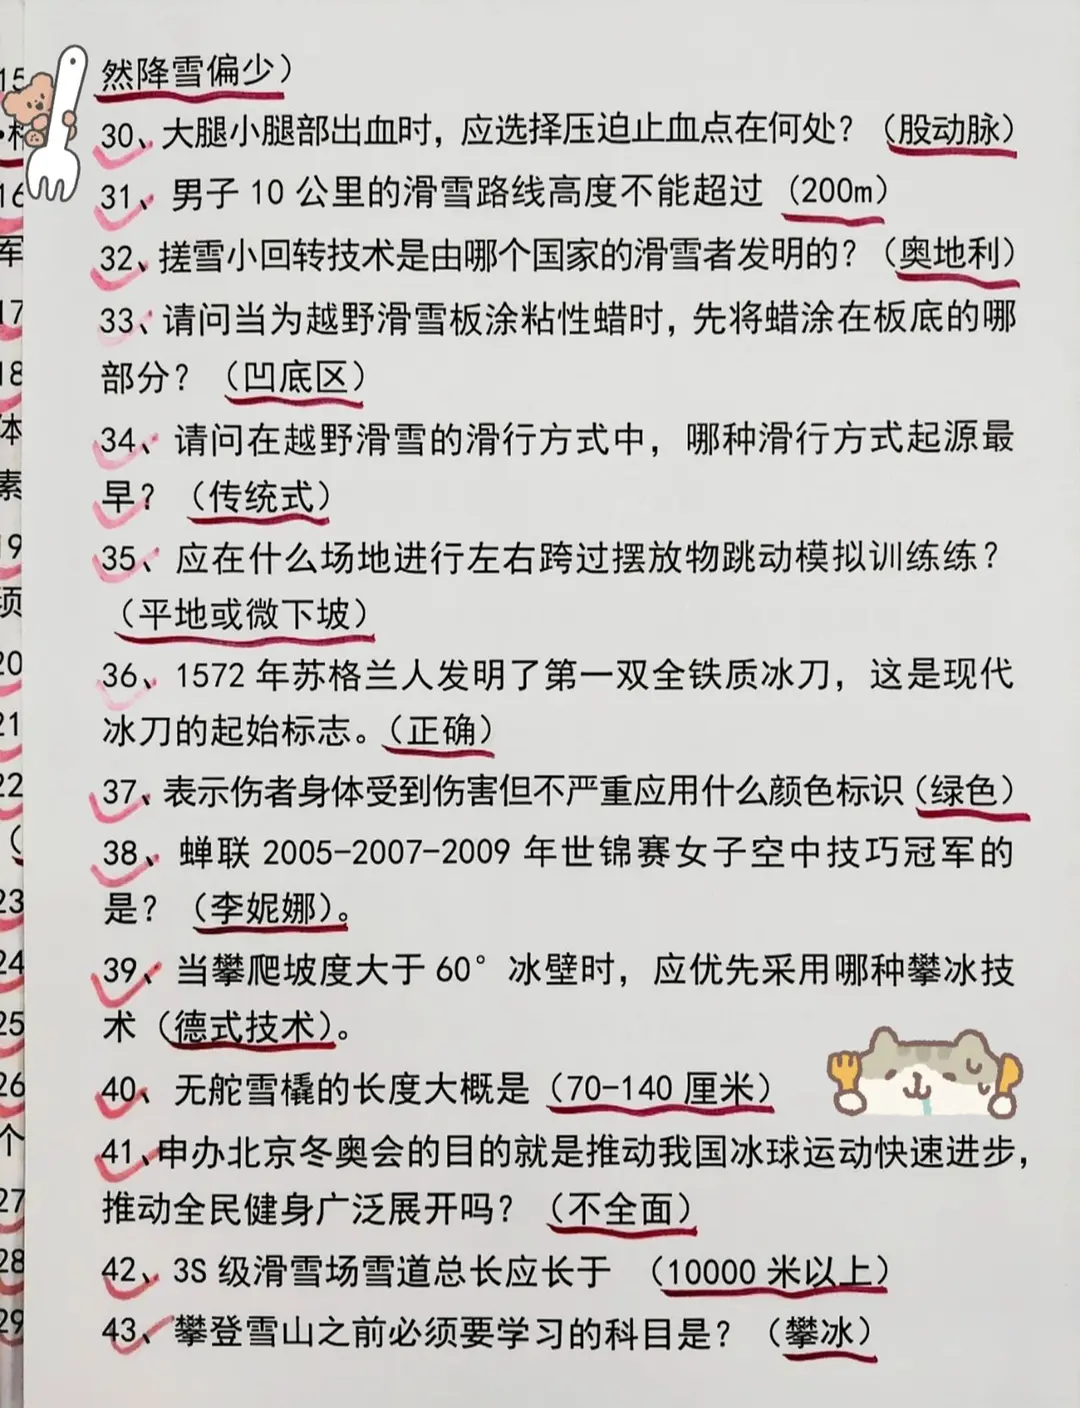 然降雪偏少）
30、大腿小腿部出血时，应选择压迫止血点在何处？（股动脉）
31、男子 10 公里的滑雪路线高度不能超过（200m）
32、搓雪小回转技术是由哪个国家的滑雪者发明的？（奥地利）
33、请问当为越野滑雪板涂粘性蜡时，先将蜡涂在板底的哪
部分？（凹底区）
34、请问在越野滑雪的滑行方式中，哪种滑行方式起源最
早？（传统式）
35、应在什么场地进行左右跨过摆放物跳动模拟训练练？
（平地或微下坡）
36、1572 年苏格兰人发明了第一双全铁质冰刀，这是现代
冰刀的起始标志。（正确）
37、表示伤者身体受到伤害但不严重应用什么颜色标识（绿色）
38、蝉联 2005-2007-2009 年世锦赛女子空中技巧冠军的
是？（李妮娜）。
39、当攀爬坡度大于 60°冰壁时，应优先采用哪种攀冰技
术（德式技术）。
40、无舵雪橇的长度大概是（70-140 厘米）
41、申办北京冬奥会的目的就是推动我国冰球运动快速进步，
推动全民健身广泛展开吗？（不全面）
42、3S 级滑雪场雪道总长应长于 （10000 米以上）
43、攀登雪山之前必须要学习的科目是？（攀冰）
15
16
军
17
18
体
素
19
20
21
22
（
23
24
25
26
个
27
28
29